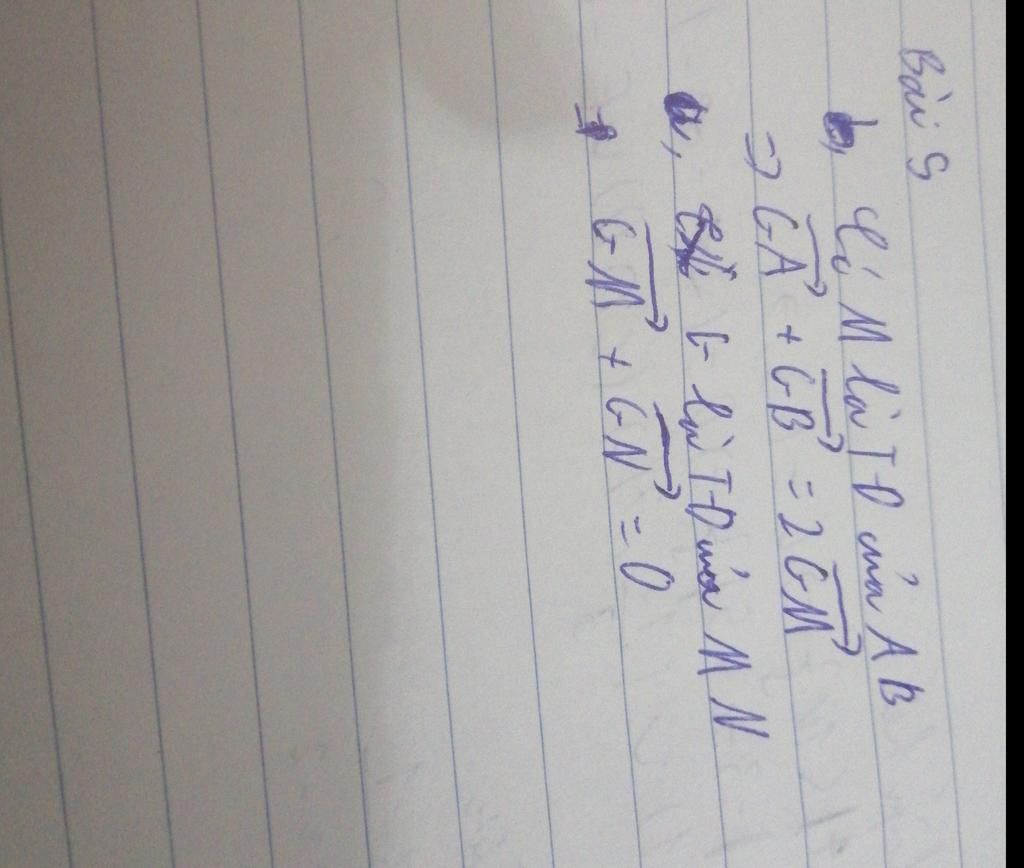 Bài 5
b, Có M là TĐ của AB
=> GA + GB = 2GM
a, G là TĐ của MN
=> GM + GN = 0